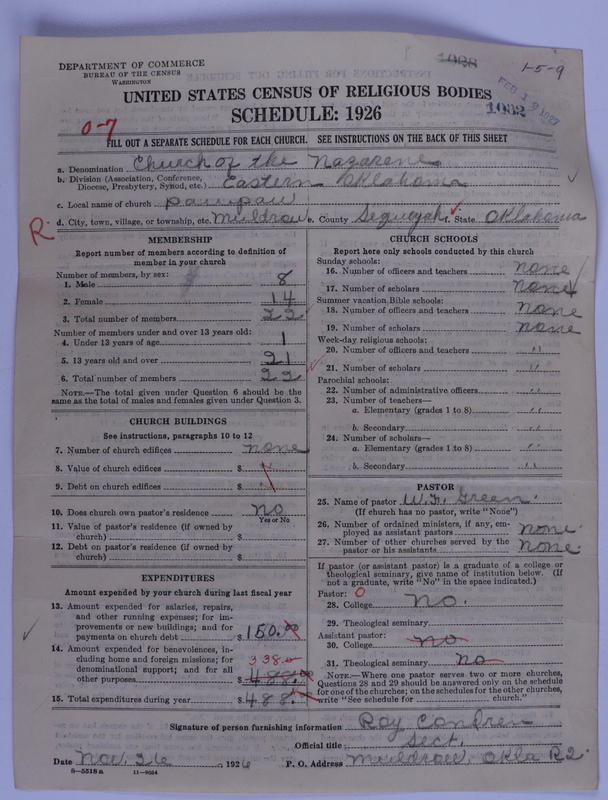 DEPARTMENT OF COMMERCE
BUREAU OF THE CENSUS
WASHINGTON
1028
1-5-9
FEB 19 1927
UNITED STATES CENSUS OF RELIGIOUS BODIES
SCHEDULE: 1926
1032
0-7
FILL OUT A SEPARATE SCHEDULE FOR EACH CHURCH. SEE INSTRUCTIONS ON THE BACK OF THIS SHEET
a. Denomination Church of the Nazarene
b. Division (Association, Conference, Diocese, Presbytery, Synod, etc.) Eastern Oklahoma
c. Local name of church paupau
R. d. City, town, village, or township, etc. Muldrow e. County Sequoyah f. State Oklahoma
MEMBERSHIP
Report number of members according to definition of
member in your church
Number of members, by sex:
1. Male 8
2. Female 14
3. Total number of members 22
Number of members under and over 13 years old:
4. Under 13 years of age 1
5. 13 years old and over 21
6. Total number of members 22
NOTE.—The total given under Question 6 should be
same as the total of males and females given under Question 3.
CHURCH BUILDINGS
See instructions, paragraphs 10 to 12
7. Number of church edifices none
8. Value of church edifices $ "
9. Debt on church edifices $ "
10. Does church own pastor's residence no
Yes or No
11. Value of pastor's residence (if owned by
church) $
12. Debt on pastor's residence (if owned by
church) $
EXPENDITURES
Amount expended by your church during last fiscal year
13. Amount expended for salaries, repairs,
and other running expenses; for im-
provements or new buildings; and for
payments on church debt $ 150.00
14. Amount expended for benevolences, in-
cluding home and foreign missions; for
denominational support; and for all
other purposes $ 338 488.00
15. Total expenditures during year $ 488.
CHURCH SCHOOLS
Report here only schools conducted by this church
Sunday schools:
16. Number of officers and teachers none
17. Number of scholars none
Summer vacation Bible schools:
18. Number of officers and teachers none
19. Number of scholars none
Week-day religious schools:
20. Number of officers and teachers "
21. Number of scholars "
Parochial schools:
22. Number of administrative officers "
23. Number of teachers—
a. Elementary (grades 1 to 8) "
b. Secondary "
24. Number of scholars—
a. Elementary (grades 1 to 8) "
b. Secondary "
PASTOR
25. Name of pastor Green.
(If church has no pastor, write "None")
26. Number of ordained ministers, if any, em-
ployed as assistant pastors none
27. Number of other churches served by the
pastor or his assistants none
If pastor (or assistant pastor) is a graduate of a college or
theological seminary, give name of institution below. (If
not a graduate, write "No" in the space indicated.)
Pastor: 0
28. College no.
29. Theological seminary
Assistant pastor:
30. College no
31. Theological seminary no
NOTE.—Where one pastor serves two or more churches,
Questions 28 and 29 should be answered only on the schedule
for one of the churches; on the schedules for the other churches,
write "See schedule for church."
Signature of person furnishing information Roy Condren
Official title Sect.
Date Nov. 26, 1926 P. O. Address Mouldrow, Okla R2.
8-5518a 11-9054